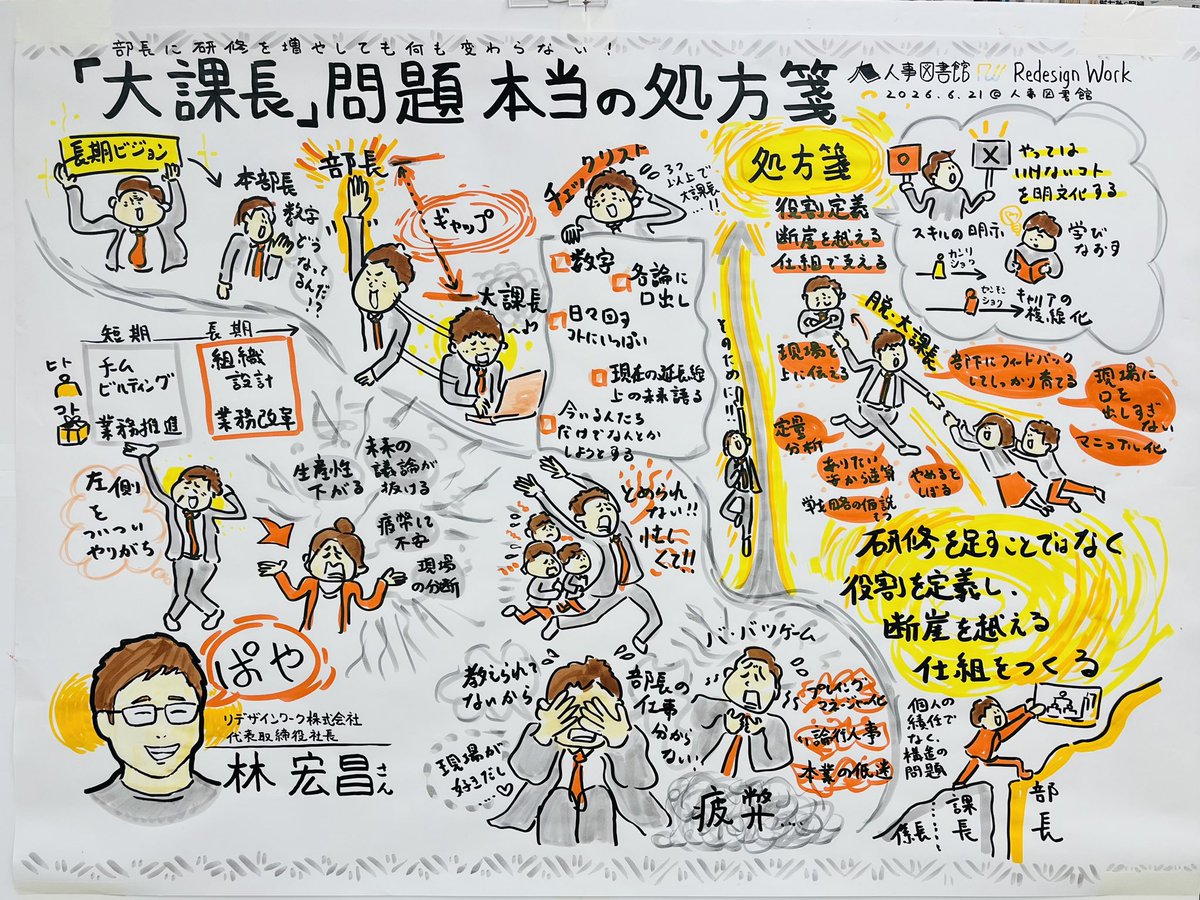 部長に研修を増やしても何も変わらない!
「大課長」問題 本当の処方箋
人事図書館
Redesign Work
2026.6.21@人事図書館
長期ビジョン
本部長
数字
どうなってるんだ!?
部長
ギャップ
大課長
チェックリスト
3つ以上で
大課長…!!
数字
各論に
口出し
日々回す
コトにいっぱい
現在の延長線
上の未来語る
今いる人たち
だけでなんとか
しようとする
短期
長期
ヒト
コト
チーム
ビルディング
業務推進
組織
設計
業務改革
左側
を
ついつい
やりがち
生産性
下がる
未来の
議論が
抜ける
疲弊して
不安
現場
の分断
とめられ
ない!!
忙し
くて!!
ぱや
リデザインワーク株式会社
代表取締役社長
林 宏昌さん
教えられて
ないから
現場が
好きだし
…♡
部長の
仕事
分からない!
バ・バツゲーム
プレイング
マネージャー化
本業の低迷
疲弊……
処方箋
役割定義
断崖を越える
仕組で支える
やっては
いけないコト
を明文化する
スキルの明示
学び
なおす
カンリ
ショク
センモン
ショク
キャリアの
複線化
そのために!!
脱・大課長
現場を
上に伝える
部下にフィードバック
してしっかり育てる
現場に
口を
出しすぎ
ない
マニュアル化
定量
分析
ありたい
姿から逆算
やめるを
しぼる
戦略の仮説
もつ
研修を足すことではなく
役割を定義し、
断崖を越える
仕組をつくる
個人の
績任で
なく、
構造の
問題
係長
課長
部長